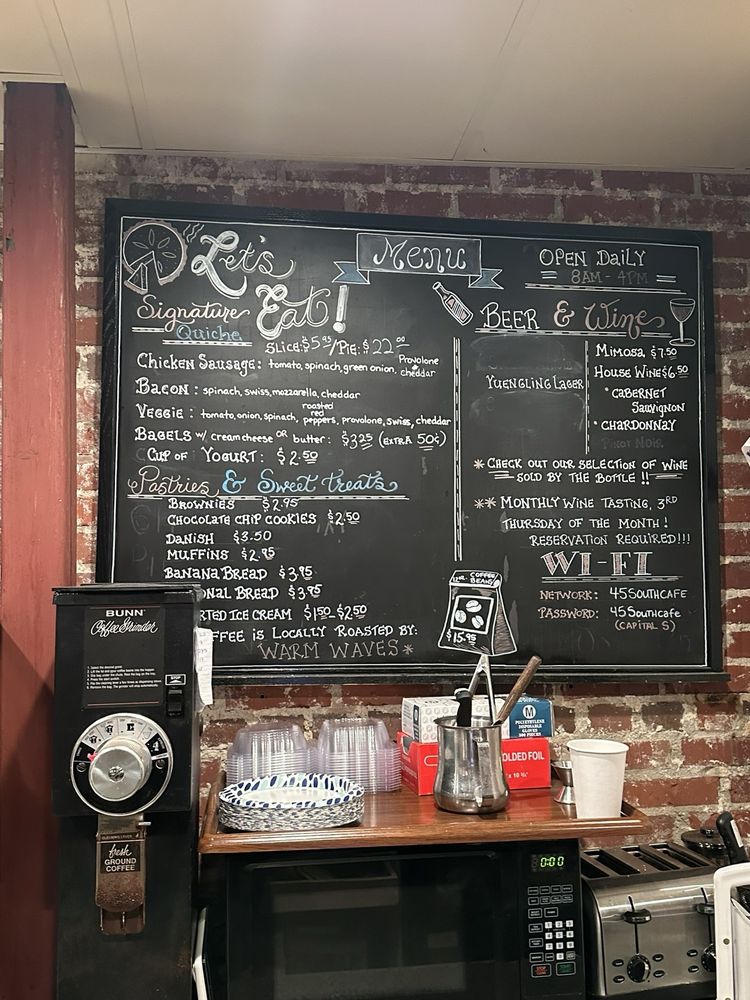 Let's
Eat!
Menu
OPEN DAILY
8AM - 4PM
Signature
Quiche
SLICE: $5.95/PIE: $22.00
CHICKEN SAUSAGE: tomato, spinach, green onion, Provolone & cheddar
BACON: spinach, swiss, mozzarella, cheddar
VEGGIE: tomato, onion, spinach, roasted red peppers, provolone, swiss, cheddar
BAGELS w/ cream cheese OR butter: $3.25 (EXTRA 50¢)
CUP OF YOGURT: $2.50
Pastries & Sweet treats
BROWNIES $2.95
CHOCOLATE CHIP COOKIES $2.50
DANISH $3.50
MUFFINS $2.95
BANANA BREAD $3.95
ONAL BREAD $3.95
RTED ICE CREAM $1.50-$2.50
FFEE IS LOCALLY ROASTED BY:
WARM WAVES *
BEER & Wine
YUENGLING LAGER
MIMOSA $7.50
HOUSE WINE $6.50
• CABERNET
SAUVIGNON
• CHARDONNAY
PINOT NOIR
* CHECK OUT OUR SELECTION OF WINE
SOLD BY THE BOTTLE !!
** MONTHLY WINE TASTING, 3RD
THURSDAY OF THE MONTH!
RESERVATION REQUIRED!!!
WI-FI
NETWORK: 45SOUTHCAFE
PASSWORD: 45Southcafe
(CAPITAL S)
COFFEE
BEANS
$15.95
BUNN
Coffee Grinder
STOP
fresh
GROUND
COFFEE
POLYETHYLENE
DISPOSABLE
GLOVES
OLDED FOIL
0:00